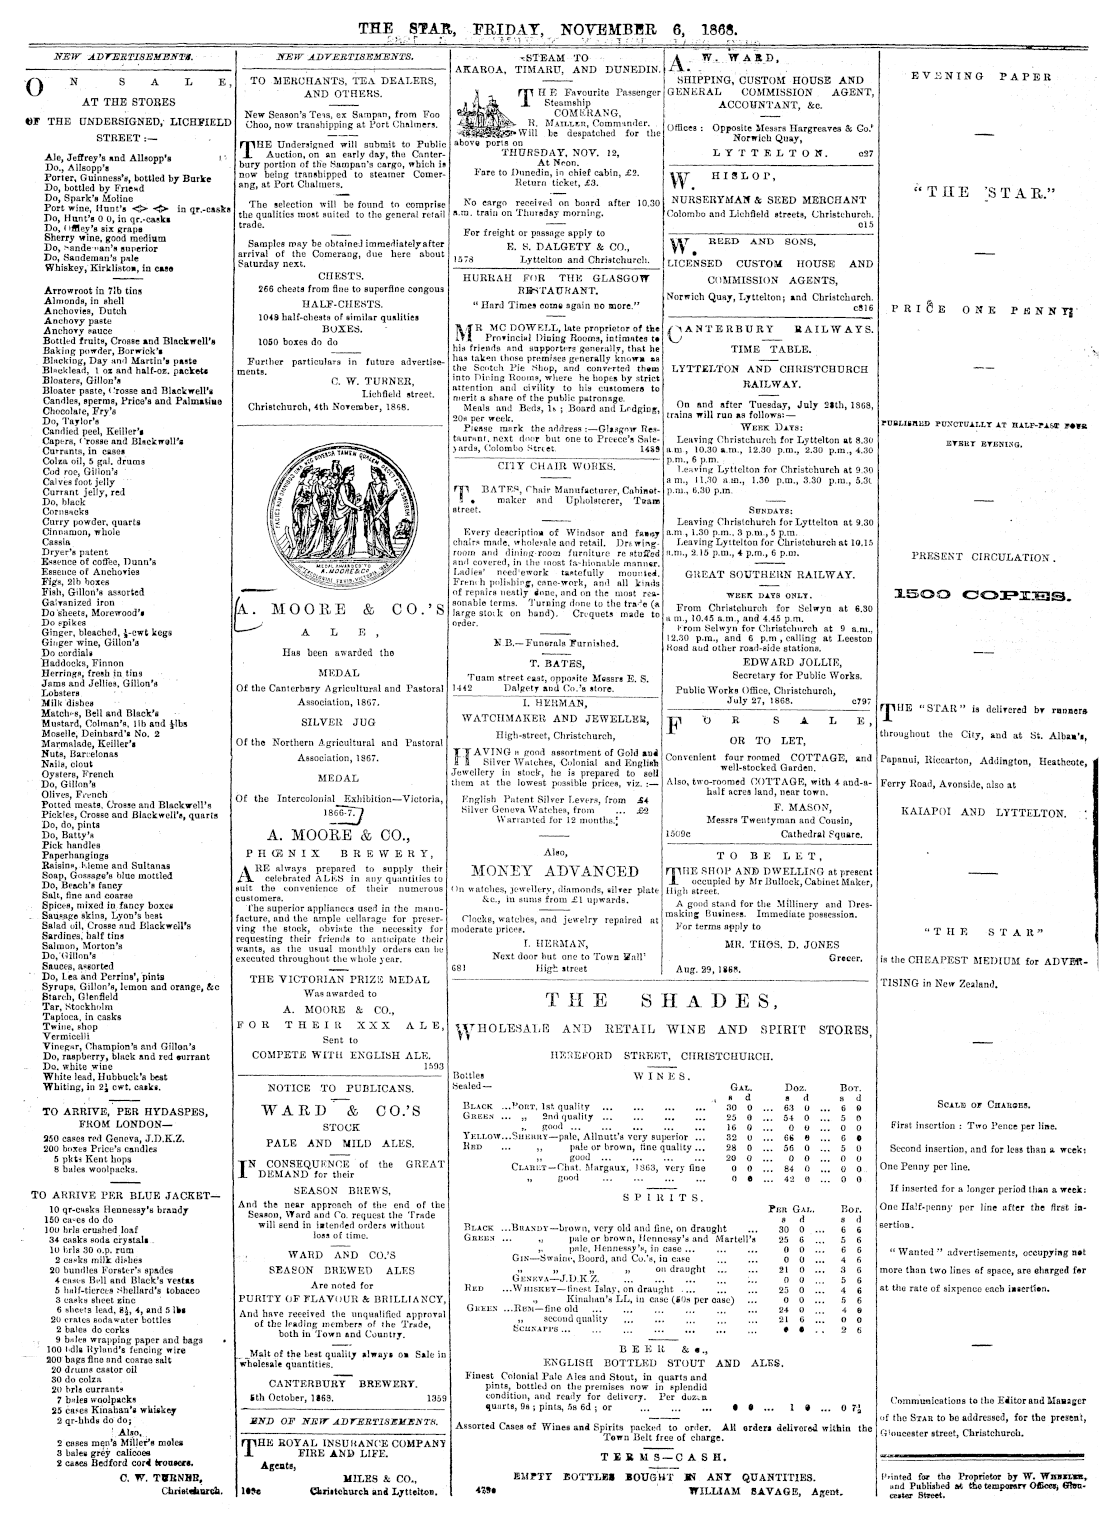 THE STAR, FRIDAY, NOVEMBER 6, 1868.
NEW ADVERTISEMENTS.
ON SALE,
AT THE STORES
OF THE UNDERSIGNED, LICHFIELD
STREET:—
Ale, Jeffrey's and Allsopp's
Do., Allsopp's
Porter, Guinness's, bottled by Burke
Do, bottled by Friend
Do, Spark's Moline
Port wine, Hunt's <> <> in qr.-casks
Do, Hunt's 0 0, in qr.-casks
Do, Offley's six grape
Sherry wine, good medium
Do, Sandeman's superior
Do, Sandeman's pale
Whiskey, Kirkliston, in case
Arrowroot in 7lb tins
Almonds, in shell
Anchovies, Dutch
Anchovy paste
Anchovy sauce
Bottled fruits, Crosse and Blackwell's
Baking powder, Borwick's
Blacking, Day and Martin's paste
Blacklead, 1 oz and half-oz. packets
Bloaters, Gillon's
Bloater paste, Crosse and Blackwell's
Candles, sperms, Price's and Palmatine
Chocolate, Fry's
Do, Taylor's
Candied peel, Keiller's
Capers, Crosse and Blackwell's
Currants, in cases
Colza oil, 5 gal. drums
Cod roe, Gillon's
Calves foot jelly
Currant jelly, red
Do, black
Cornsacks
Curry powder, quarts
Cinnamon, whole
Cassia
Dryer's patent
Essence of coffee, Dunn's
Essence of Anchovies
Figs, 2lb boxes
Fish, Gillon's assorted
Galvanized iron
Do sheets, Morewood's
Do spikes
Ginger, bleached, ¼-cwt kegs
Ginger wine, Gillon's
Do cordials
Haddocks, Finnon
Herrings, fresh in tins
Jams and Jellies, Gillon's
Lobsters
Milk dishes
Matches, Bell and Black's
Mustard, Colman's, 1lb and ½lbs
Moselle, Deinhard's No. 2
Marmalade, Keiller's
Nuts, Barcelonas
Nails, clout
Oysters, French
Do, Gillon's
Olives, French
Potted meats, Crosse and Blackwell's
Pickles, Crosse and Blackwell's, quarts
Do, do, pints
Do, Batty's
Pick handles
Paperhangings
Raisins, Eleme and Sultanas
Soap, Gossage's blue mottled
Do, Beach's fancy
Salt, fine and coarse
Spices, mixed in fancy boxes
Sausage skins, Lyon's best
Salad oil, Crosse and Blackwell's
Sardines, half tins
Salmon, Morton's
Do, Gillon's
Sauces, assorted
Do, Lea and Perrins', pints
Syrups, Gillon's, lemon and orange, &c
Starch, Glenfield
Tar, Stockholm
Tapioca, in casks
Twine, shop
Vermicelli
Vinegar, Champion's and Gillon's
Do, raspberry, black and red currant
Do. white wine
White lead, Hubbuck's best
Whiting, in 2½ cwt. casks.
TO ARRIVE, PER HYDASPES,
FROM LONDON—
250 cases red Geneva, J.D.K.Z.
200 boxes Price's candles
5 pkts Kent hops
8 bales woolpacks.
TO ARRIVE PER BLUE JACKET—
10 qr-casks Hennessy's brandy
150 cases do do
100 brls crushed loaf
34 casks soda crystals
10 brls 30 o.p. rum
2 casks milk dishes
20 bundles Forster's spades
4 cases Bell and Black's vestas
5 half-tierces Shellard's tobacco
3 casks sheet zinc
6 sheets lead, 8½, 4, and 5 lbs
20 crates sodawater bottles
2 bales do corks
9 bales wrapping paper and bags
100 bdls Ryland's fencing wire
200 bags fine and coarse salt
20 drums castor oil
30 do colza
20 brls currants
7 bales woolpacks
25 cases Kinahan's whiskey
2 qr-hhds do do;
Also,
2 cases men's Miller's moles
3 bales grey calicoes
2 cases Bedford cord trousers.
C. W. TURNER,
Christchurch.
NEW ADVERTISEMENTS.
TO MERCHANTS, TEA DEALERS,
AND OTHERS.
New Season's Teas, ex Sampan, from Foo
Choo, now transhipping at Port Chalmers.
THE Undersigned will submit to Public
Auction, on an early day, the Canterbury
portion of the Sampan's cargo, which is
now being transhipped to steamer Comerang,
at Port Chalmers.
The selection will be found to comprise
the qualities most suited to the general retail
trade.
Samples may be obtained immediately after
arrival of the Comerang, due here about
Saturday next.
CHESTS.
266 chests from fine to superfine congous
HALF-CHESTS.
1048 half-chests of similar qualities
BOXES.
1050 boxes do do
Further particulars in future advertisements.
C. W. TURNER,
Lichfield street.
Christchurch, 4th November, 1868.
MEDAL AWARDED TO
A. MOORE & CO.
A. MOORE & CO.'S
ALE,
Has been awarded the
MEDAL
Of the Canterbury Agricultural and Pastoral
Association, 1867.
SILVER JUG
Of the Northern Agricultural and Pastoral
Association, 1867.
MEDAL
Of the Intercolonial Exhibition—Victoria,
1866-7.
A. MOORE & CO.,
PHŒNIX BREWERY,
ARE always prepared to supply their
celebrated ALES in any quantities to
suit the convenience of their numerous
customers.
The superior appliances used in the manufacture,
and the ample cellarage for preserving
the stock, obviate the necessity for
requesting their friends to anticipate their
wants, as the usual monthly orders can be
executed throughout the whole year.
THE VICTORIAN PRIZE MEDAL
Was awarded to
A. MOORE & CO.,
FOR THEIR XXX ALE,
Sent to
COMPETE WITH ENGLISH ALE.
1593
NOTICE TO PUBLICANS.
WARD & CO.'S
STOCK
PALE AND MILD ALES.
IN CONSEQUENCE of the GREAT
DEMAND for their
SEASON BREWS,
And the near approach of the end of the
Season, Ward and Co. request the Trade
will send in intended orders without
loss of time.
WARD AND CO.'S
SEASON BREWED ALES
Are noted for
PURITY OF FLAVOUR & BRILLIANCY,
And have received the unqualified approval
of the leading members of the Trade,
both in Town and Country.
Malt of the best quality always on Sale in
wholesale quantities.
CANTERBURY BREWERY.
5th October, 1868. 1359
END OF NEW ADVERTISEMENTS.
THE ROYAL INSURANCE COMPANY
FIRE AND LIFE.
Agents,
MILES & CO.,
Christchurch and Lyttelton.
STEAM TO
AKAROA, TIMARU, AND DUNEDIN.
THE Favourite Passenger
Steamship
COMERANG,
R. MAILLER, Commander.
Will be despatched for the
above ports on
THURSDAY, NOV. 12,
At Noon.
Fare to Dunedin, in chief cabin, £2.
Return ticket, £3.
No cargo received on board after 10.30
a.m. train on Thursday morning.
For freight or passage apply to
E. S. DALGETY & CO.,
1578 Lyttelton and Christchurch.
HURRAH FOR THE GLASGOW
RESTAURANT.
"Hard Times come again no more."
MR MC DOWELL, late proprietor of the
Provincial Dining Rooms, intimates to
his friends and supporters generally, that he
has taken those premises generally known as
the Scotch Pie Shop, and converted them
into Dining Rooms, where he hopes by strict
attention and civility to his customers to
merit a share of the public patronage.
Meals and Beds, 1s; Board and Lodging,
20s per week.
Please mark the address:—Glasgow Restaurant,
next door but one to Preece's Saleyards,
Colombo Street. 1489
CITY CHAIR WORKS.
T. BATES, Chair Manufacturer, Cabinetmaker
and Upholsterer, Tuam
street.
Every description of Windsor and fancy
chairs made, wholesale and retail. Drawing-room
and dining-room furniture re stuffed
and covered, in the most fashionable manner.
Ladies' needlework tastefully mounted.
French polishing, cane-work, and all kinds
of repairs neatly done, and on the most reasonable
terms. Turning done to the trade (a
large stock on hand). Croquets made to
order.
N.B.—Funerals Furnished.
T. BATES,
Tuam street east, opposite Messrs E. S.
1442 Dalgety and Co.'s store.
I. HERMAN,
WATCHMAKER AND JEWELLER,
High-street, Christchurch,
HAVING a good assortment of Gold and
Silver Watches, Colonial and English
Jewellery in stock, he is prepared to sell
them at the lowest possible prices, viz.:—
English Patent Silver Levers, from £4
Silver Geneva Watches, from ... £2
Warranted for 12 months.
Also,
MONEY ADVANCED
On watches, jewellery, diamonds, silver plate
&c., in sums from £1 upwards.
Clocks, watches, and jewelry repaired at
moderate prices.
I. HERMAN,
Next door but one to Town Hall
681 High street
A. W. WARD,
SHIPPING, CUSTOM HOUSE AND
GENERAL COMMISSION AGENT,
ACCOUNTANT, &c.
Offices: Opposite Messrs Hargreaves & Co.'
Norwich Quay,
LYTTELTON. c27
W. HISLOP,
NURSERYMAN & SEED MERCHANT
Colombo and Lichfield streets, Christchurch.
c15
W. REED AND SONS,
LICENSED CUSTOM HOUSE AND
COMMISSION AGENTS,
Norwich Quay, Lyttelton; and Christchurch.
c816
CANTERBURY RAILWAYS.
TIME TABLE.
LYTTELTON AND CHRISTCHURCH
RAILWAY.
On and after Tuesday, July 28th, 1868,
trains will run as follows:—
WEEK DAYS:
Leaving Christchurch for Lyttelton at 8.30
a.m., 10.30 a.m., 12.30 p.m., 2.30 p.m., 4.30
p.m., 6 p.m.
Leaving Lyttelton for Christchurch at 9.30
a.m., 11.30 a.m., 1.30 p.m., 3.30 p.m., 5.30
p.m., 6.30 p.m.
SUNDAYS:
Leaving Christchurch for Lyttelton at 9.30
a.m., 1.30 p.m., 3 p.m., 5 p.m.
Leaving Lyttelton for Christchurch at 10.15
a.m., 2.15 p.m., 4 p.m., 6 p.m.
GREAT SOUTHERN RAILWAY.
WEEK DAYS ONLY.
From Christchurch for Selwyn at 6.30
a.m., 10.45 a.m., and 4.45 p.m.
From Selwyn for Christchurch at 9 a.m.,
12.30 p.m., and 6 p.m., calling at Leeston
Road and other road-side stations.
EDWARD JOLLIE,
Secretary for Public Works.
Public Works Office, Christchurch,
July 27, 1868. c797
FOR SALE,
OR TO LET,
Convenient four roomed COTTAGE, and
well-stocked Garden.
Also, two-roomed COTTAGE, with 4 and-a-half
acres land, near town.
F. MASON,
Messrs Twentyman and Cousin,
1509c Cathedral Square.
TO BE LET,
THE SHOP AND DWELLING at present
occupied by Mr Bullock, Cabinet Maker,
High street.
A good stand for the Millinery and Dressmaking
Business. Immediate possession.
For terms apply to
MR. THOS. D. JONES
Grocer.
Aug. 29, 1868.
THE SHADES,
WHOLESALE AND RETAIL WINE AND SPIRIT STORES,
HEREFORD STREET, CHRISTCHURCH.
Bottles WINES.
Sealed— GAL. DOZ. BOT.
s d s d s d
BLACK ...PORT, 1st quality ... 30 0 ... 63 0 ... 6 0
GREEN ... „ 2nd quality ... 25 0 ... 54 0 ... 5 0
„ good ... 16 0 ... 0 0 ... 0 0
YELLOW...SHERRY—pale, Allnutt's very superior ... 32 0 ... 66 0 ... 6 0
RED ... „ pale or brown, fine quality ... 28 0 ... 56 0 ... 5 0
„ good ... 20 0 ... 0 0 ... 0 0
CLARET—Chat. Margaux, 1863, very fine 0 0 ... 84 0 ... 0 0
„ good ... 0 0 ... 42 0 ... 0 0
SPIRITS.
PER GAL. BOT.
s d s d
BLACK ...BRANDY—brown, very old and fine, on draught ... 30 0 ... 6 6
GREEN ... „ pale or brown, Hennessy's and Martell's 25 6 ... 5 6
„ pale, Hennessy's, in case ... 0 0 ... 6 6
GIN—Swaine, Board, and Co.'s, in case ... 0 0 ... 4 6
„ „ „ „ on draught ... 21 0 ... 3 6
GENEVA—J.D.K.Z. ... 0 0 ... 5 6
RED ...WHISKEY—finest Islay, on draught ... 25 0 ... 4 6
„ Kinahan's LL, in case (50s per case) ... 0 0 ... 5 6
GREEN ...RUM—fine old ... 24 0 ... 4 0
„ second quality ... 21 6 ... 0 0
SCHNAPPS ... 2 6
BEER &c.,
ENGLISH BOTTLED STOUT AND ALES.
Finest Colonial Pale Ales and Stout, in quarts and
pints, bottled on the premises now in splendid
condition, and ready for delivery. Per dozen
quarts, 9s; pints, 5s 6d; or ... 0 7½
Assorted Cases of Wines and Spirits packed to order. All orders delivered within the
Town Belt free of charge.
TERMS—CASH.
EMPTY BOTTLES BOUGHT IN ANY QUANTITIES.
WILLIAM SAVAGE, Agent.
EVENING PAPER
"THE STAR."
PRICE ONE PENNY
PUBLISHED PUNCTUALLY AT HALF-PAST FOUR
EVERY EVENING.
PRESENT CIRCULATION.
1500 COPIES.
THE "STAR" is delivered by runners
throughout the City, and at St. Alban's,
Papanui, Riccarton, Addington, Heathcote,
Ferry Road, Avonside, also at
KAIAPOI AND LYTTELTON.
"THE STAR"
is the CHEAPEST MEDIUM for ADVERTISING
in New Zealand.
SCALE OF CHARGES.
First insertion: Two Pence per line.
Second insertion, and for less than a week:
One Penny per line.
If inserted for a longer period than a week:
One Half-penny per line after the first insertion.
"Wanted" advertisements, occupying not
more than two lines of space, are charged for
at the rate of sixpence each insertion.
Communications to the Editor and Manager
of the STAR to be addressed, for the present,
Gloucester street, Christchurch.
Printed for the Proprietor by W. WHEELER,
and Published at the temporary Offices, Gloucester
Street.